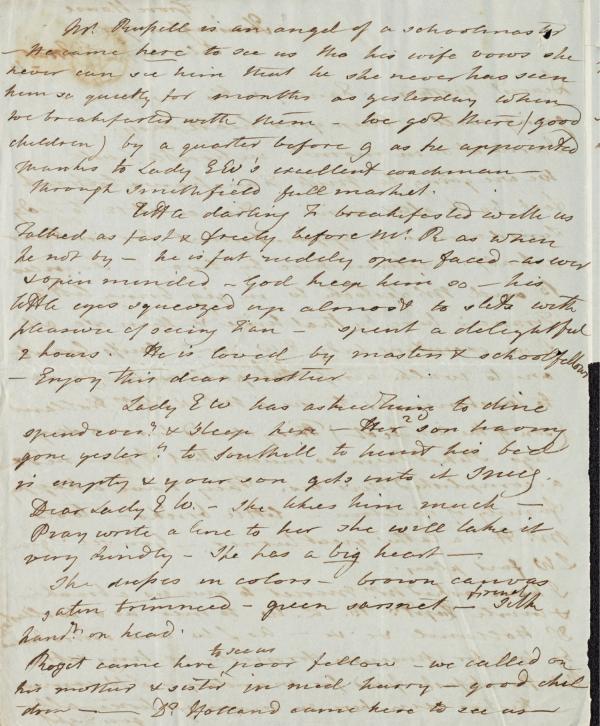 Mr. Russell is an angel of a schoolmaster
- He came here to see us tho his wife vows she
never can see him that he she never has seen
him so quietly for months as yesterday when
we breakfasted with them - We got there (good
children) by a quarter before 9 as he appointed
thanks to Lady E W's excellent coachman -
through Smithfield full market.
Little darling F breakfasted with us
Talked as fast & freely before Mr. R as when
he not by - he is fat ruddy open faced - as ever
& open minded - God keep him so - his
little eyes squeezed up almost to slits with
pleasure of seeing Fan - spent a delightful
2 hours. He is loved by masters & schoolfellows
- Enjoy this dear mother
Lady E W has asked him to dine
spend & sleep here - Her 2d son having
gone yester.y to Southill to hunt his bed
is empty & your son gets into it Snug
Dear Lady E W. - She likes him much -
Pray write a line to her she will take it
very kindly - She has a big heart -
She dresses in colors - brown canvas
satin trimmed - green sarsnet - Silk
hand.f on head.
Roget came here to see us poor fellow - we called on
his mother & sister in mid hurry - good chil
dren - Dr. Holland came here to see us -